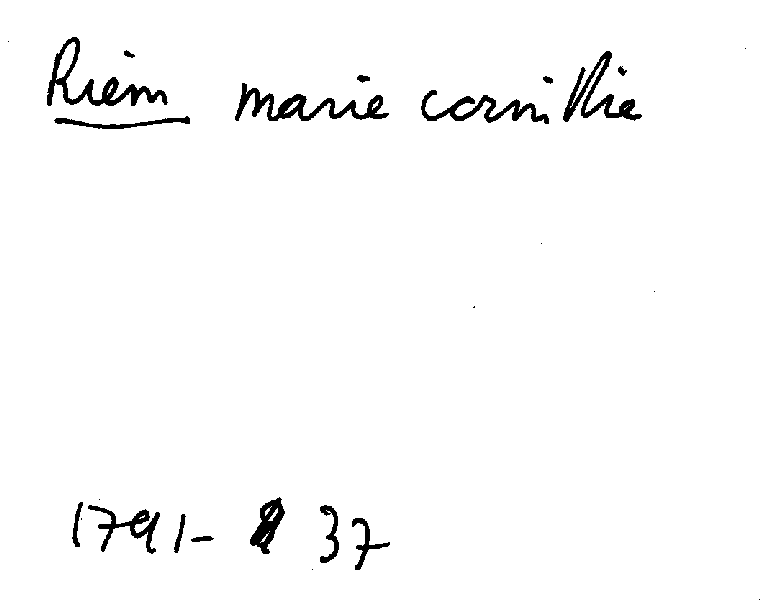 Riem marie cornillie
1791- 37